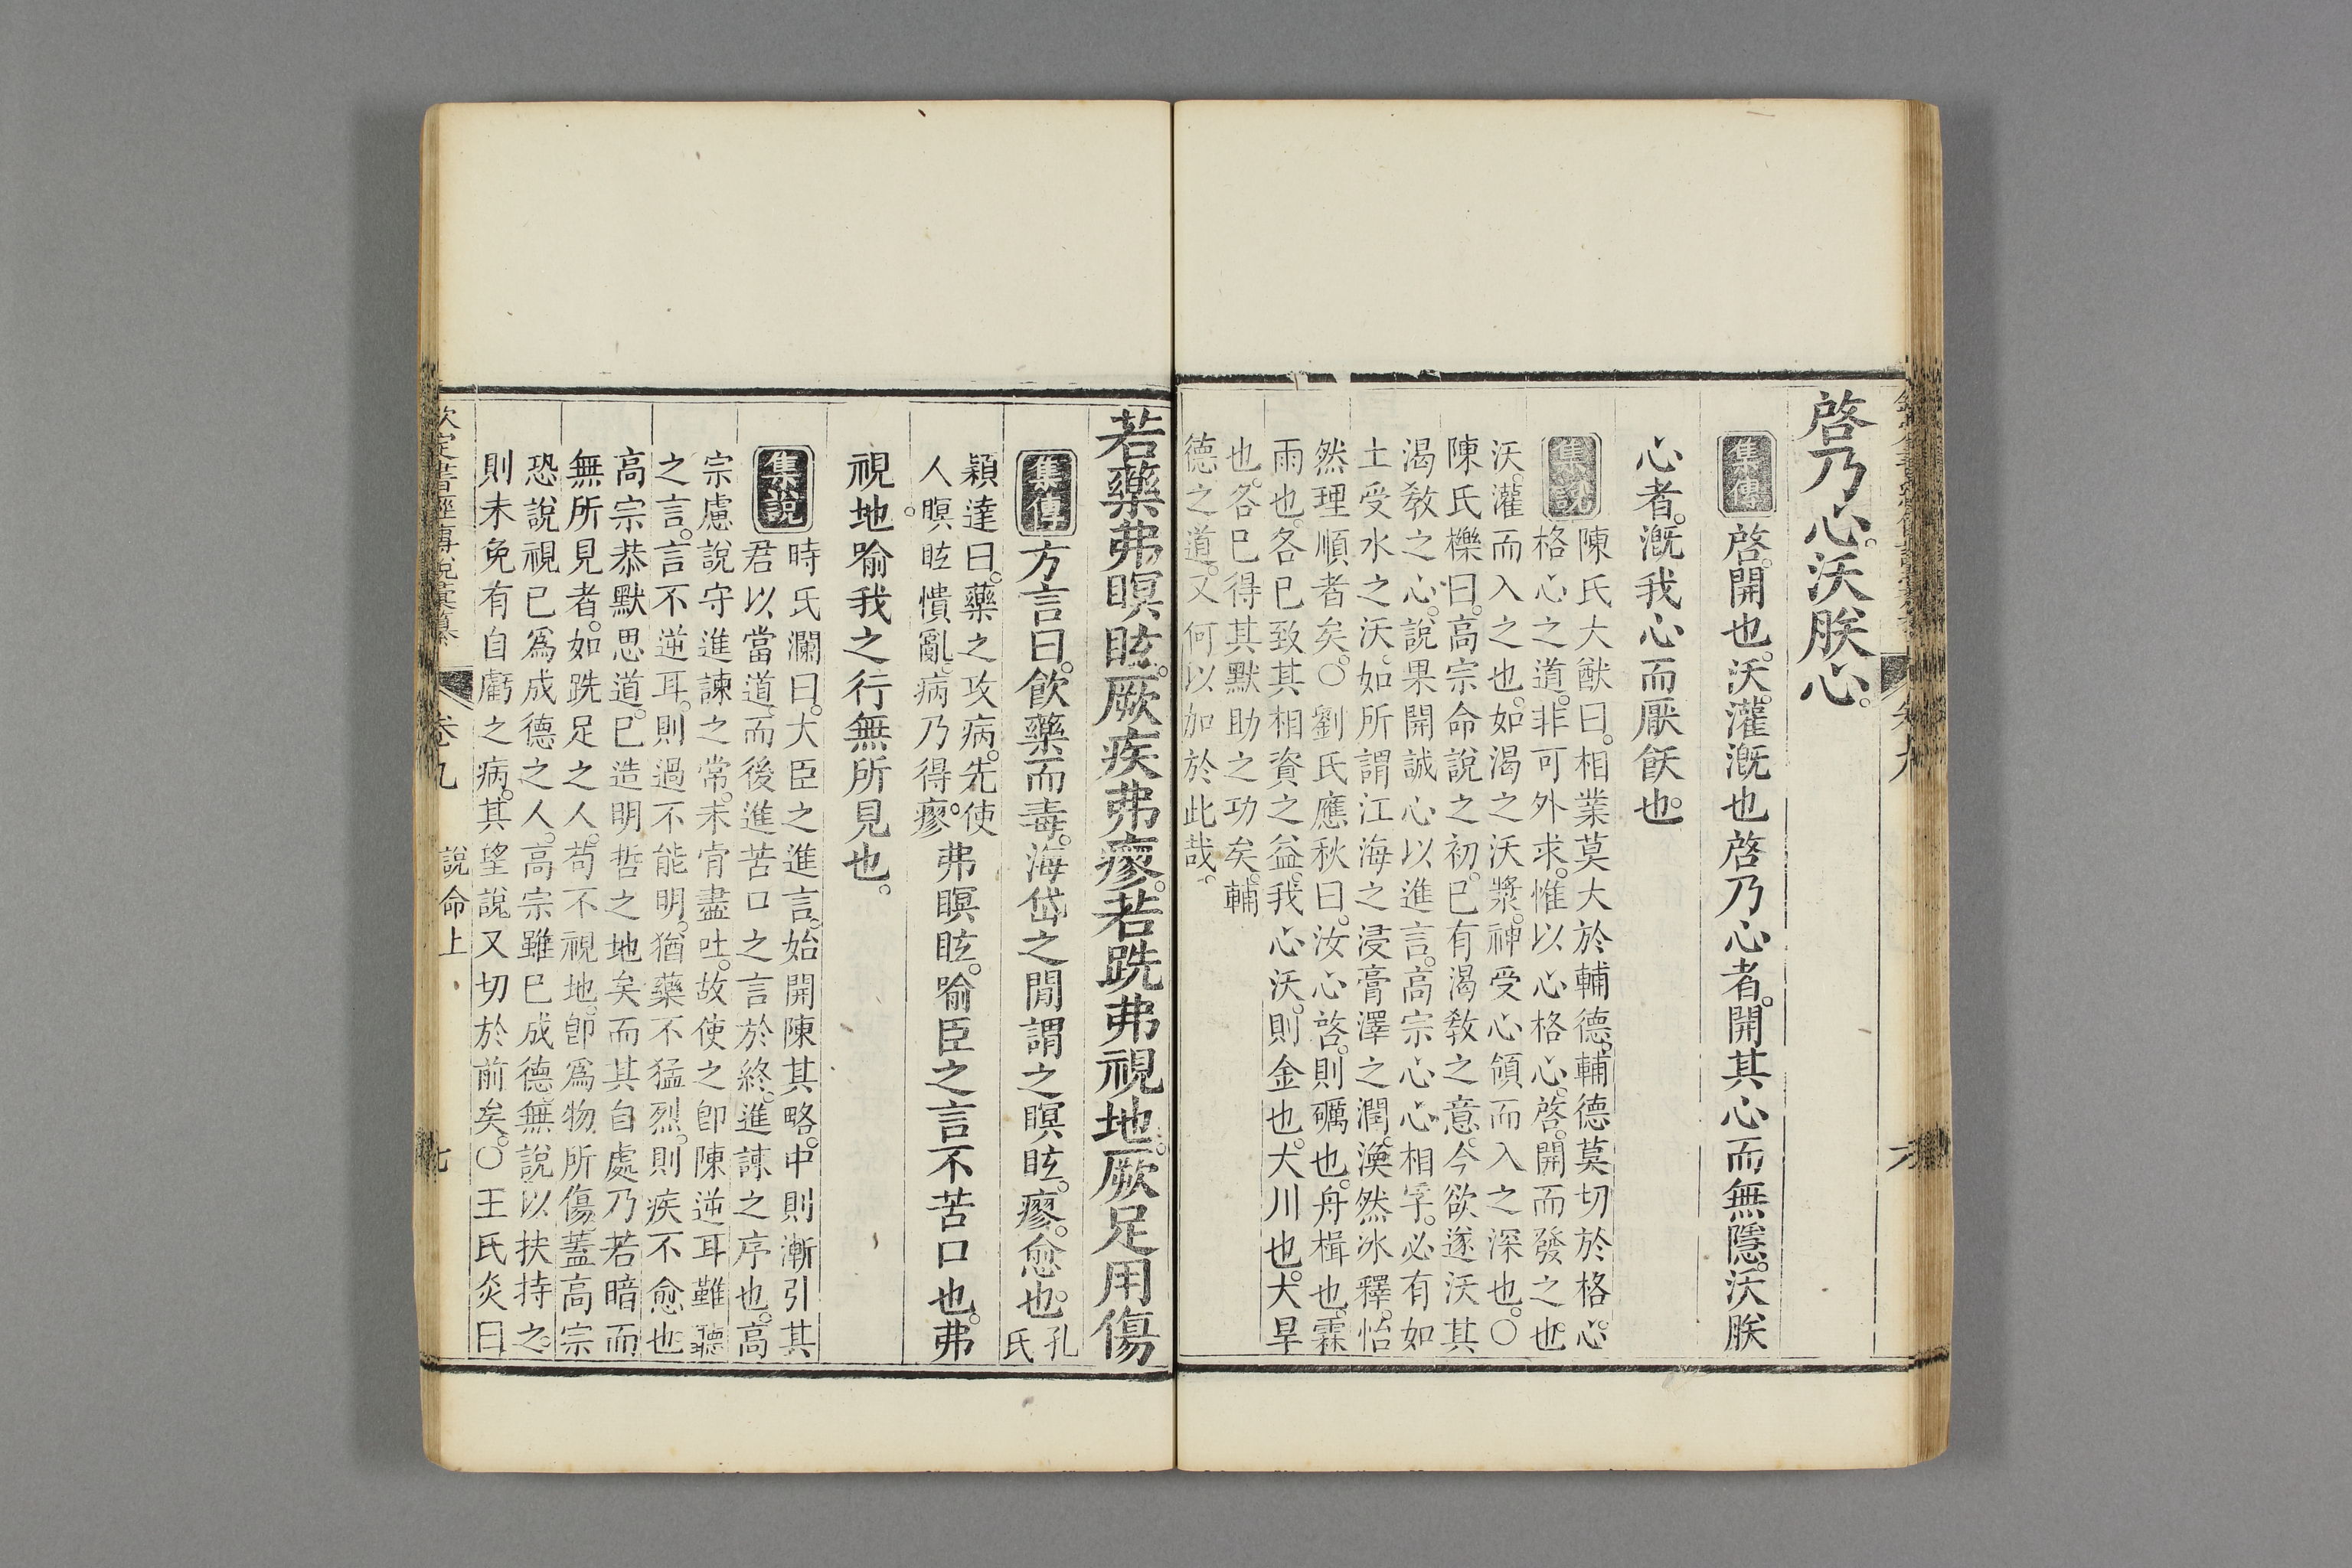 啓乃心。沃朕心。
集傳 啓。開也。沃。灌漑也。啓乃心者。開其心而無隱。沃朕
心者。漑我心而厭飫也。
集說 陳氏大猷曰。相業莫大於輔德。輔德莫切於格心。
格心之道。非可外求。惟以心格心。啓。開而發之也。
沃。灌而入之也。如渴之沃漿。神受心領而入之深也。○
陳氏櫟曰。高宗命說之初。已有渴敎之意。今欲遂沃其
渴敎之心。說果開誠心以進言。高宗心心相孚。必有如
土受水之沃。如所謂江海之浸膏澤之潤。渙然冰釋。怡
然理順者矣。○劉氏應秋曰。汝心啓。則礪也。舟楫也。霖
雨也。各已致其相資之益。我心沃。則金也。大川也。大旱
也。各已得其默助之功矣。輔
德之道。又何以加於此哉。
若藥弗瞑眩。厥疾弗瘳。若跣弗視地。厥足用傷
集傳 方言曰。飮藥而毒。海岱之閒謂之瞑眩。瘳。愈也。孔氏
穎達曰。藥之攻病。先使
人瞑眩憒亂。病乃得瘳。弗瞑眩。喻臣之言不苦口也。弗
視地喻我之行無所見也。
集說 時氏瀾曰。大臣之進言。始開陳其略。中則漸引其
君以當道。而後進苦口之言於終。進諫之序也。高
宗慮說守進諫之常。未肯盡吐。故使之卽陳逆耳難聽
之言。言不逆耳。則過不能明。猶藥不猛烈。則疾不愈也。
高宗恭默思道。已造明哲之地矣而其自處乃若暗而
無所見者。如跣足之人。苟不視地。卽爲物所傷。蓋高宗
恐說視已爲成德之人。高宗雖已成德。無說以扶持之。
則未免有自虧之病。其望說又切於前矣。○王氏炎曰
欽定書經傳說彙纂
卷九
說命上
七